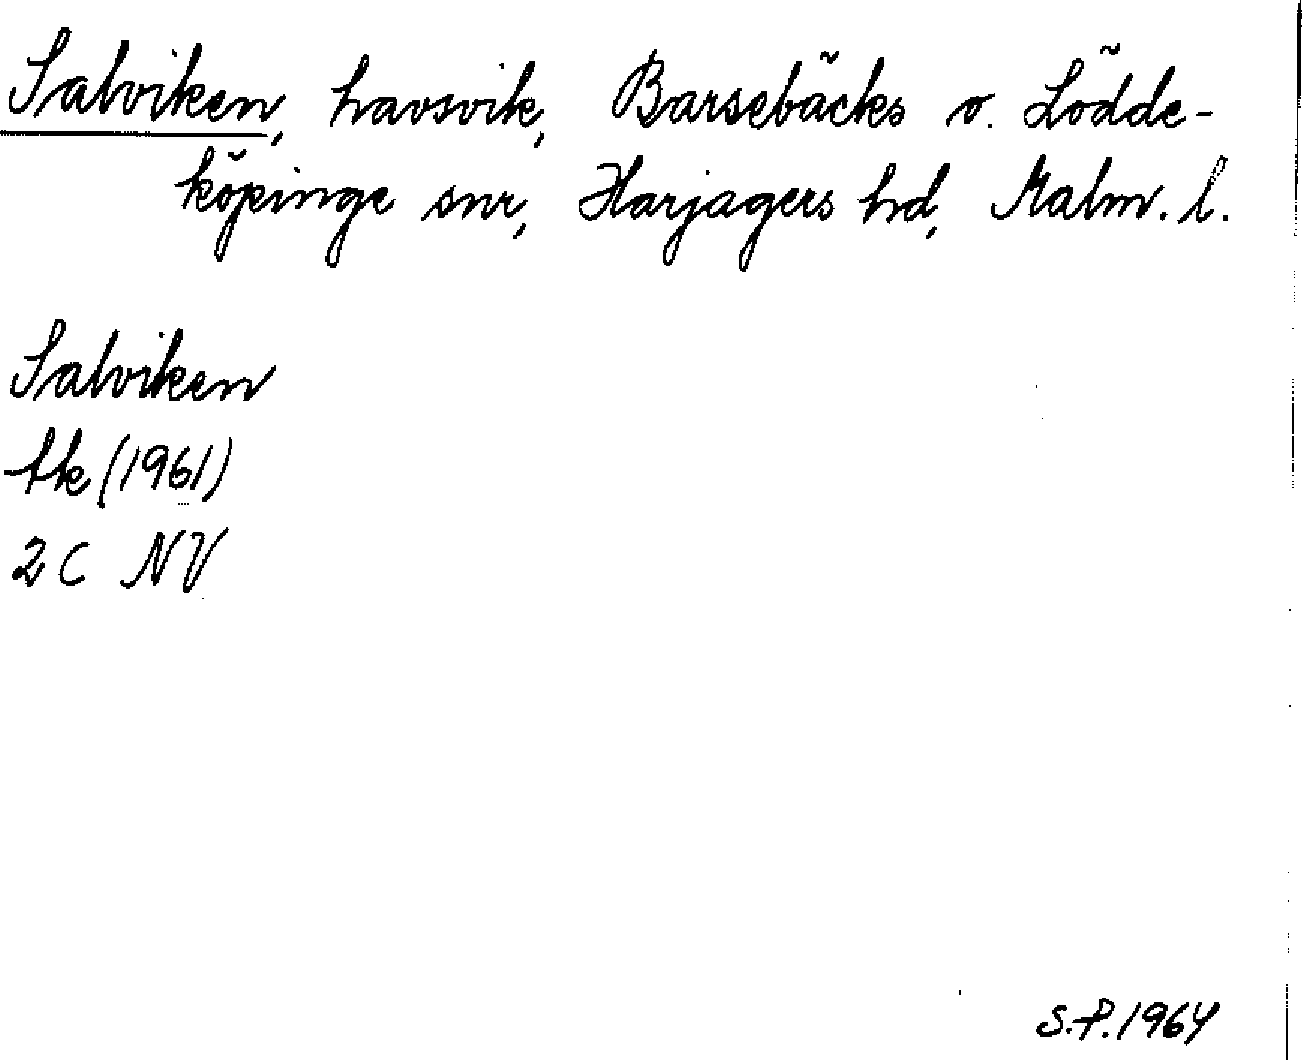 Salviken, havsvik, Barsebäcks o. Lödde-
köpinge snr, Harjagers hd, Malm. l.
Salviken
tk (1961)
2 C NV
S.P. 1964